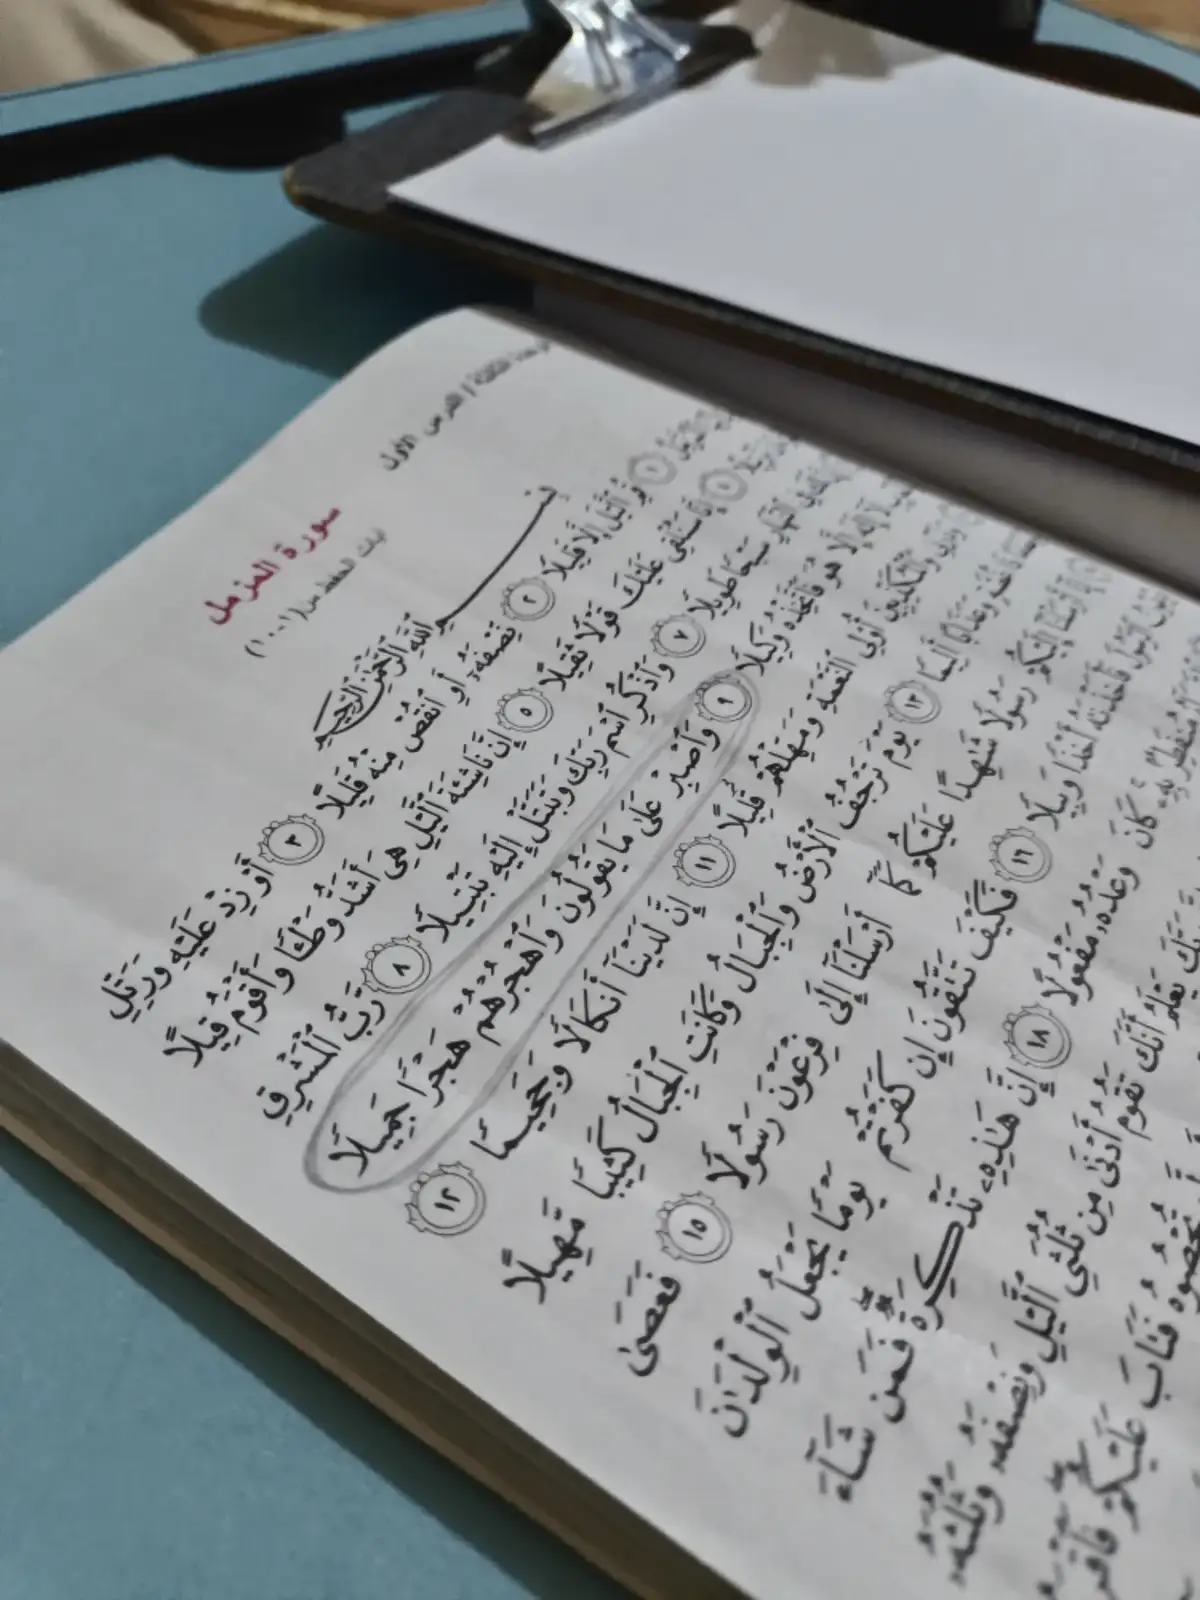 الثالثة / الدرس الأول
سورة المزمل
آيات الحفظ من (١ - ١٠)
بِسْمِ ٱللَّهِ ٱلرَّحْمَٰنِ ٱلرَّحِيمِ
ٱلْمُزَّمِّلُ ١ قُمِ ٱلَّيْلَ إِلَّا قَلِيلًا ٢ نِّصْفَهُۥٓ أَوِ ٱنقُصْ مِنْهُ قَلِيلًا ٣ أَوْ زِدْ عَلَيْهِ وَرَتِّلِ
تَرْتِيلًا ٤ إِنَّا سَنُلْقِى عَلَيْكَ قَوْلًا ثَقِيلًا ٥ إِنَّ نَاشِئَةَ ٱلَّيْلِ هِىَ أَشَدُّ وَطْـًٔا وَأَقْوَمُ قِيلًا
فِى ٱلنَّهَارِ سَبْحًا طَوِيلًا ٧ وَٱذْكُرِ ٱسْمَ رَبِّكَ وَتَبَتَّلْ إِلَيْهِ تَبْتِيلًا ٨ رَّبُّ ٱلْمَشْرِقِ
لَآ إِلَٰهَ إِلَّا هُوَ فَٱتَّخِذْهُ وَكِيلًا ٩ وَٱصْبِرْ عَلَىٰ مَا يَقُولُونَ وَٱهْجُرْهُمْ هَجْرًا جَمِيلًا
وَذَرْنِى وَٱلْمُكَذِّبِينَ أُو۟لِى ٱلنَّعْمَةِ وَمَهِّلْهُمْ قَلِيلًا ١١ إِنَّ لَدَيْنَآ أَنكَالًا وَجَحِيمًا ١٢
وَطَعَامًا ذَا غُصَّةٍ وَعَذَابًا أَلِيمًا ١٣ يَوْمَ تَرْجُفُ ٱلْأَرْضُ وَٱلْجِبَالُ وَكَانَتِ ٱلْجِبَالُ كَثِيبًا مَّهِيلًا
أَرْسَلْنَآ إِلَيْكُمْ رَسُولًا شَٰهِدًا عَلَيْكُمْ كَمَآ أَرْسَلْنَآ إِلَىٰ فِرْعَوْنَ رَسُولًا ١٥ فَعَصَىٰ
فِرْعَوْنُ ٱلرَّسُولَ فَأَخَذْنَٰهُ أَخْذًا وَبِيلًا ١٦ فَكَيْفَ تَتَّقُونَ إِن كَفَرْتُمْ يَوْمًا يَجْعَلُ ٱلْوِلْدَٰنَ
مُنفَطِرٌۢ بِهِۦ كَانَ وَعْدُهُۥ مَفْعُولًا ١٨ إِنَّ هَٰذِهِۦ تَذْكِرَةٌ فَمَن شَآءَ
رَبَّكَ يَعْلَمُ أَنَّكَ تَقُومُ أَدْنَىٰ مِن ثُلُثَىِ ٱلَّيْلِ وَنِصْفَهُۥ وَثُلُثَهُۥ
تُحْصُوهُ فَتَابَ عَلَيْكُمْ